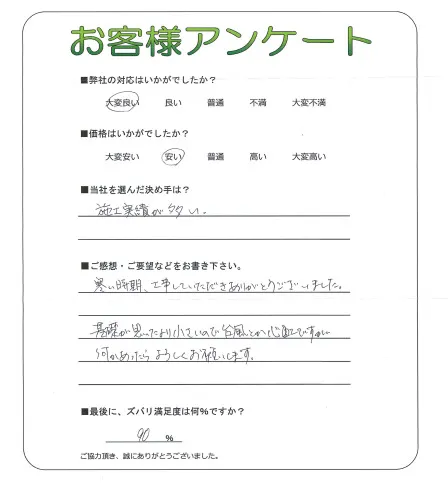 お客様アンケート
■弊社の対応はいかがでしたか？
大変良い 良い 普通 不満 大変不満
■価格はいかがでしたか？
大変安い 安い 普通 高い 大変高い
■当社を選んだ決め手は？
施工実績が多い。
■ご感想・ご要望などをお書き下さい。
寒い時期、工事していただきありがとうございました。
基礎が思ったより小さいので台風とか心配ですが
何かあったらよろしくお願いします。
■最後に、ズバリ満足度は何%ですか？
90 %
ご協力頂き、誠にありがとうございました。